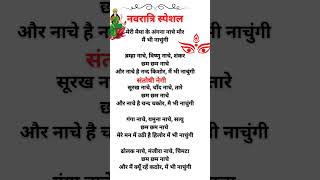 नवरात्रि स्पेशल
मेरी मैया के अंगना नाचे मोर
मैं भी नाचुंगी
ब्रम्हा नाचे, विष्णु नाचे, शंकर
छम छम नाचे
और नाचे है नन्द किशोर, मैं भी नाचुंगी
संतोषी नेगी
सूरख नाचे, चाँद नाचे, तारे
छम छम नाचे
और नाचे है चन्द चकोर, मै भी नाचुंगी
गंगा नाचे, यमुना नाचे, सरयु
छम छम नाचे
मेरे मन में उठी है हिलोर में भी नाचुंगी
ढोलक नाचे, मंजीरा नाचे, चिमटा
छम छम नाचे
और मैं क्यूँ रहूँ कठोर, मैं भी नाचुंगी